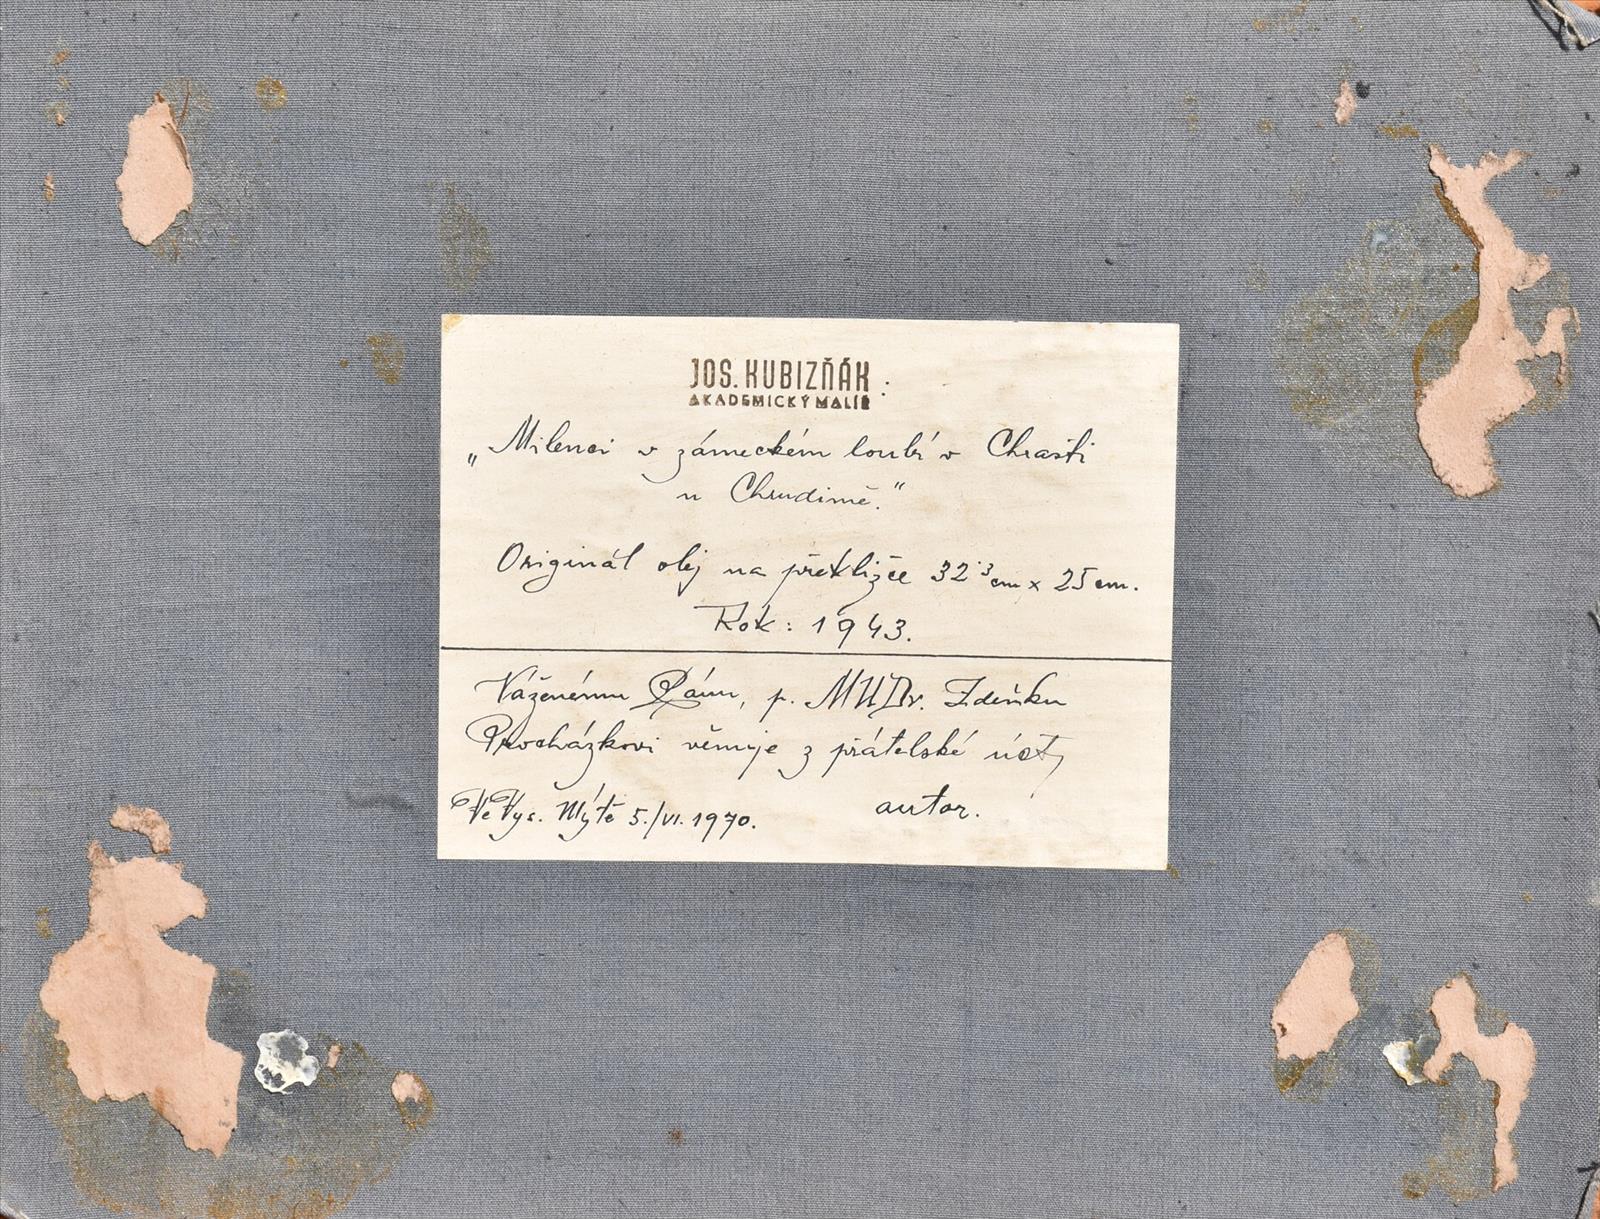 JOS. KUBIZŇÁK :
AKADEMICKÝ MALÍŘ
„Milenci v zámeckém loubí v Chrasti
u Chrudimě."
Originál olej na překližce 32·3 cm x 25 cm.
Rok: 1943.
Váženému Pánu, p. MUDr. Zdeňku
Procházkovi věnuje z přátelské úcty
autor.
Ve Vys. Mýtě 5./VI. 1970.